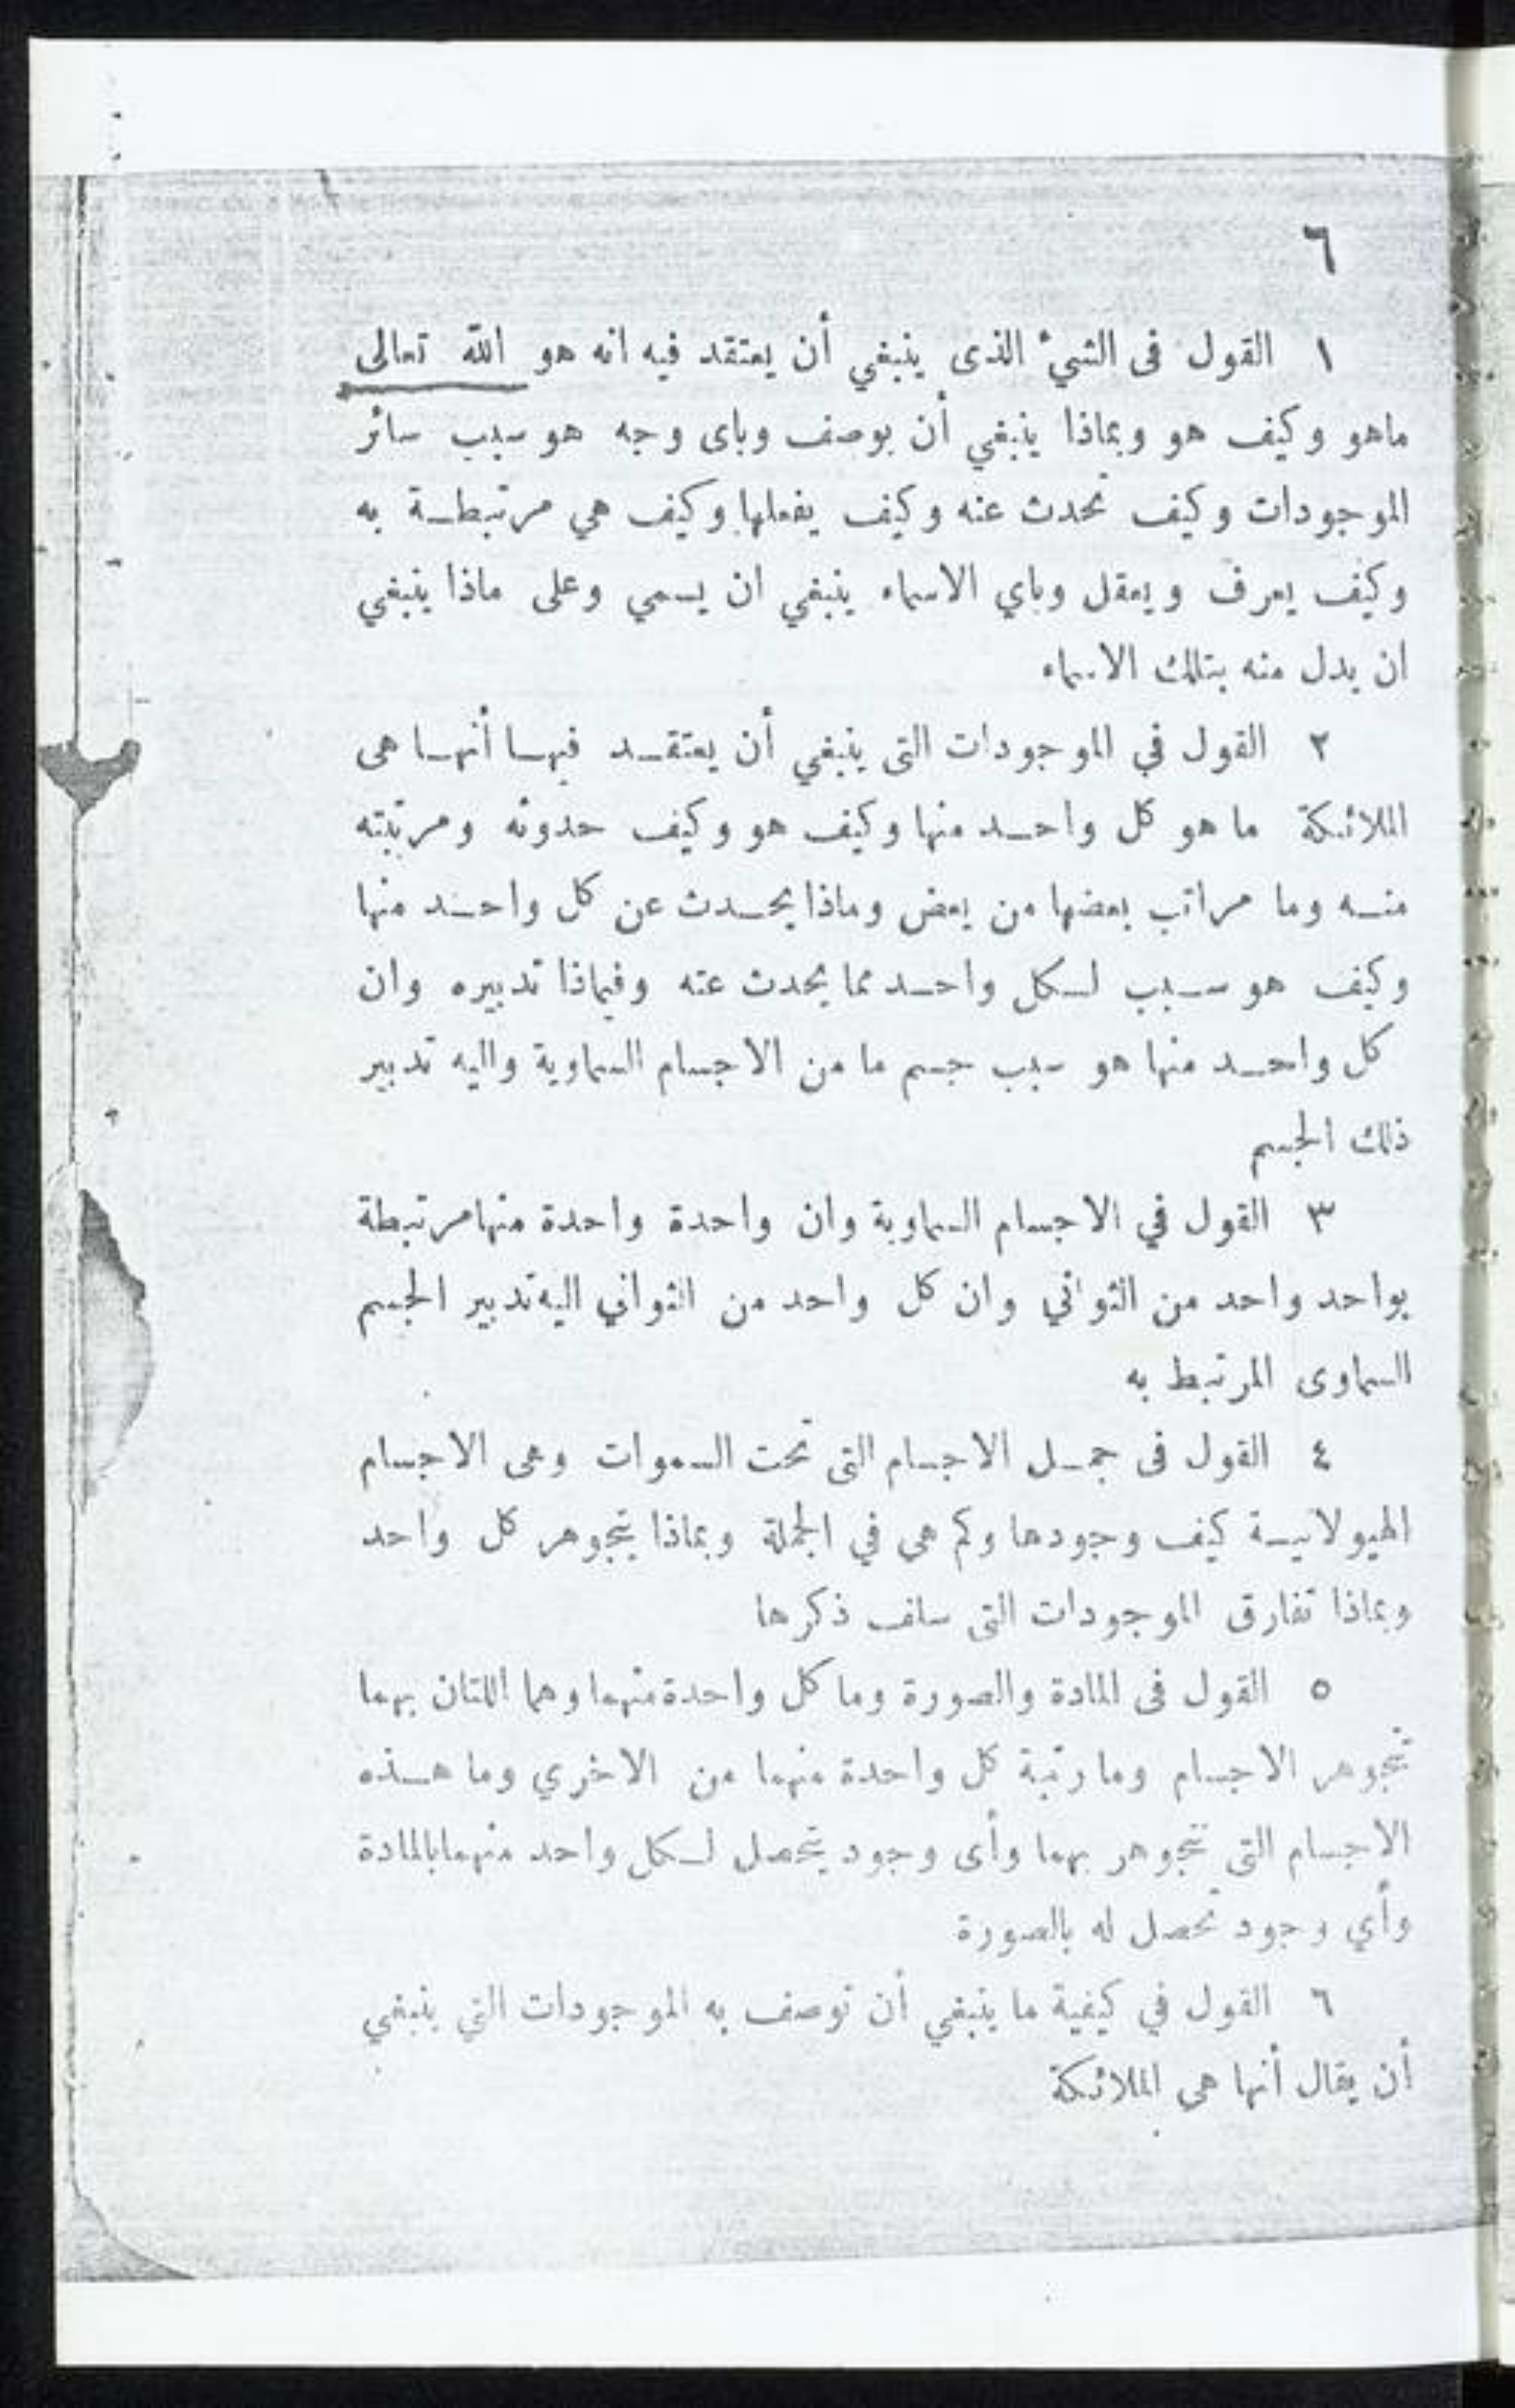 ٦
١ القول فى الشيء الذى ينبغي أن يعتقد فيه انه هو الله تعالى
ماهو وكيف هو وبماذا ينبغي أن يوصف وباى وجه هو سبب سائر
الموجودات وكيف تحدث عنه وكيف يفعلها وكيف هي مرتبطة به
وكيف يعرف ويعقل وباي الاسماء ينبغي ان يسمي وعلى ماذا ينبغي
ان يدل منه بتلك الاسماء
٢ القول في الموجودات التى ينبغي أن يعتقد فيها أنها هى
الملائكة ما هو كل واحد منها وكيف هو وكيف حدوثه ومرتبته
منه وما مراتب بعضها من بعض وماذا يحدث عن كل واحد منها
وكيف هو سبب لكل واحد مما يحدث عنه وفيماذا تدبيره وان
كل واحد منها هو سبب جسم ما من الاجسام السماوية واليه تدبير
ذلك الجسم
٣ القول في الاجسام السماوية وان واحدة واحدة منها مرتبطة
بواحد واحد من الثواني وان كل واحد من الثواني اليه تدبير الجسم
السماوى المرتبط به
٤ القول فى جمل الاجسام التى تحت السموات وهى الاجسام
الهيولانية كيف وجودها وكم هى في الجملة وبماذا يتجوهر كل واحد
وبماذا تفارق الموجودات التى سلف ذكرها
٥ القول فى المادة والصورة وما كل واحدة منهما وهما اللتان بهما
تتجوهر الاجسام وما رتبة كل واحدة منهما من الاخري وما هذه
الاجسام التى تتجوهر بهما وأى وجود يتحصل لكل واحد منهما بالمادة
وأي وجود تحصل له بالصورة
٦ القول في كيفية ما ينبغي أن توصف به الموجودات التي ينبغي
أن يقال أنها هي الملائكة